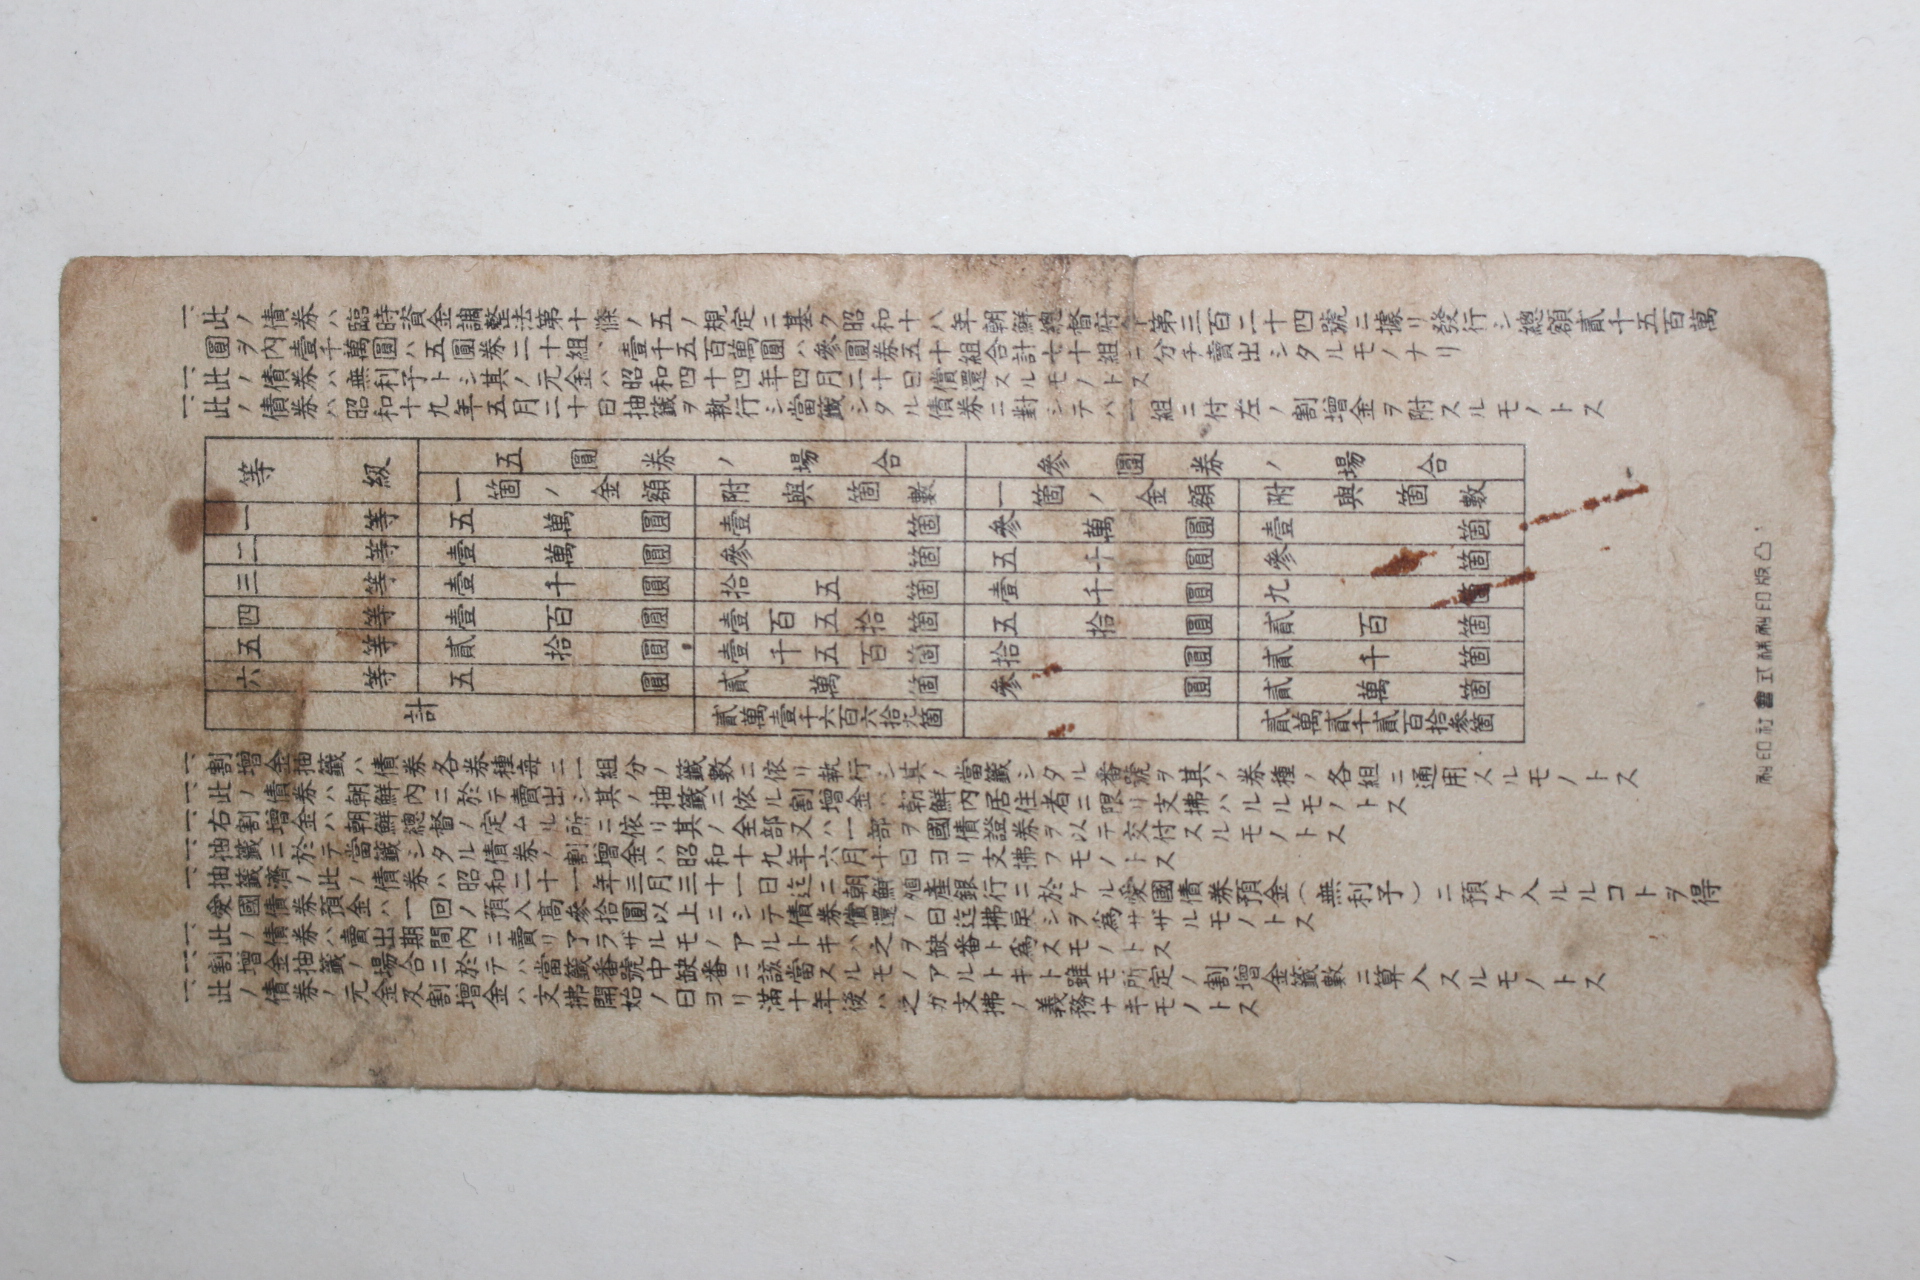 一、此ノ債券ハ臨時資金調整法第十條ノ五ノ規定ニ基ク昭和十八年朝鮮總督府令第三百二十四號ニ據リ發行シ總額貳千五百萬
圓ヲ內壹千萬圓ハ五圓券二十組、壹千五百萬圓ハ參圓券五十組合計七十組ニ分チ賣出シタルモノナリ
一、此ノ債券ハ無利子トシ其ノ元金ハ昭和四十四年四月二十日償還スルモノトス
一、此ノ債券ハ昭和十九年五月二十日抽籤ヲ執行シ當籤シタル債券ニ對シテハ一組ニ付左ノ割增金ヲ附スルモノトス
等級 五圓券ノ場合 參圓券ノ場合
一箇ノ金額 附與箇數 一箇ノ金額 附與箇數
一等 五萬圓 壹箇 參萬圓 壹箇
二等 壹萬圓 參箇 五千圓 參箇
三等 壹千圓 拾五箇 壹千圓 九箇
四等 壹百圓 壹百五拾箇 五拾圓 貳百箇
五等 貳拾圓 壹千五百箇 拾圓 貳千箇
六等 五圓 貳萬箇 參圓 貳萬箇
計 貳萬壹千六百六拾九箇 貳萬貳千貳百拾參箇
一、割增金抽籤ハ債券各券種每ニ一組分ノ籤數ニ依リ執行シ其ノ當籤シタル番號ヲ其ノ券種ノ各組ニ通用スルモノトス
一、此ノ債券ハ朝鮮內ニ於テ賣出シ其ノ抽籤ニ依ル割增金ハ朝鮮內居住者ニ限リ支拂ハルルモノトス
一、右割增金ハ朝鮮總督ノ定ムル所ニ依リ其ノ全部又ハ一部ヲ國債證券ヲ以テ交付スルモノトス
一、抽籤ニ於テ當籤シタル債券ノ割增金ハ昭和十九年六月十日ヨリ支拂フモノトス
一、抽籤濟ノ此ノ債券ハ昭和二十一年三月三十一日迄ニ朝鮮殖產銀行ニ於ケル愛國債券預金(無利子)ニ預ケ入ルルコトヲ得
愛國債券預金ハ一回ノ預入高參拾圓以上ニシテ債券償還ノ日迄拂戾シヲ爲サザルモノトス
一、此ノ債券ハ賣出期間內ニ賣リ了ラザルモノアルトキハ之ヲ缺番ト爲スモノトス
一、割增金抽籤ノ場合ニ於テハ當籤番號中缺番ニ該當スルモノアルトキト雖モ所定ノ割增金籤數ニ算入スルモノトス
一、此ノ債券ノ元金及割增金ハ支拂開始ノ日ヨリ滿十年後ハ之ガ支拂ノ義務ナキモノトス